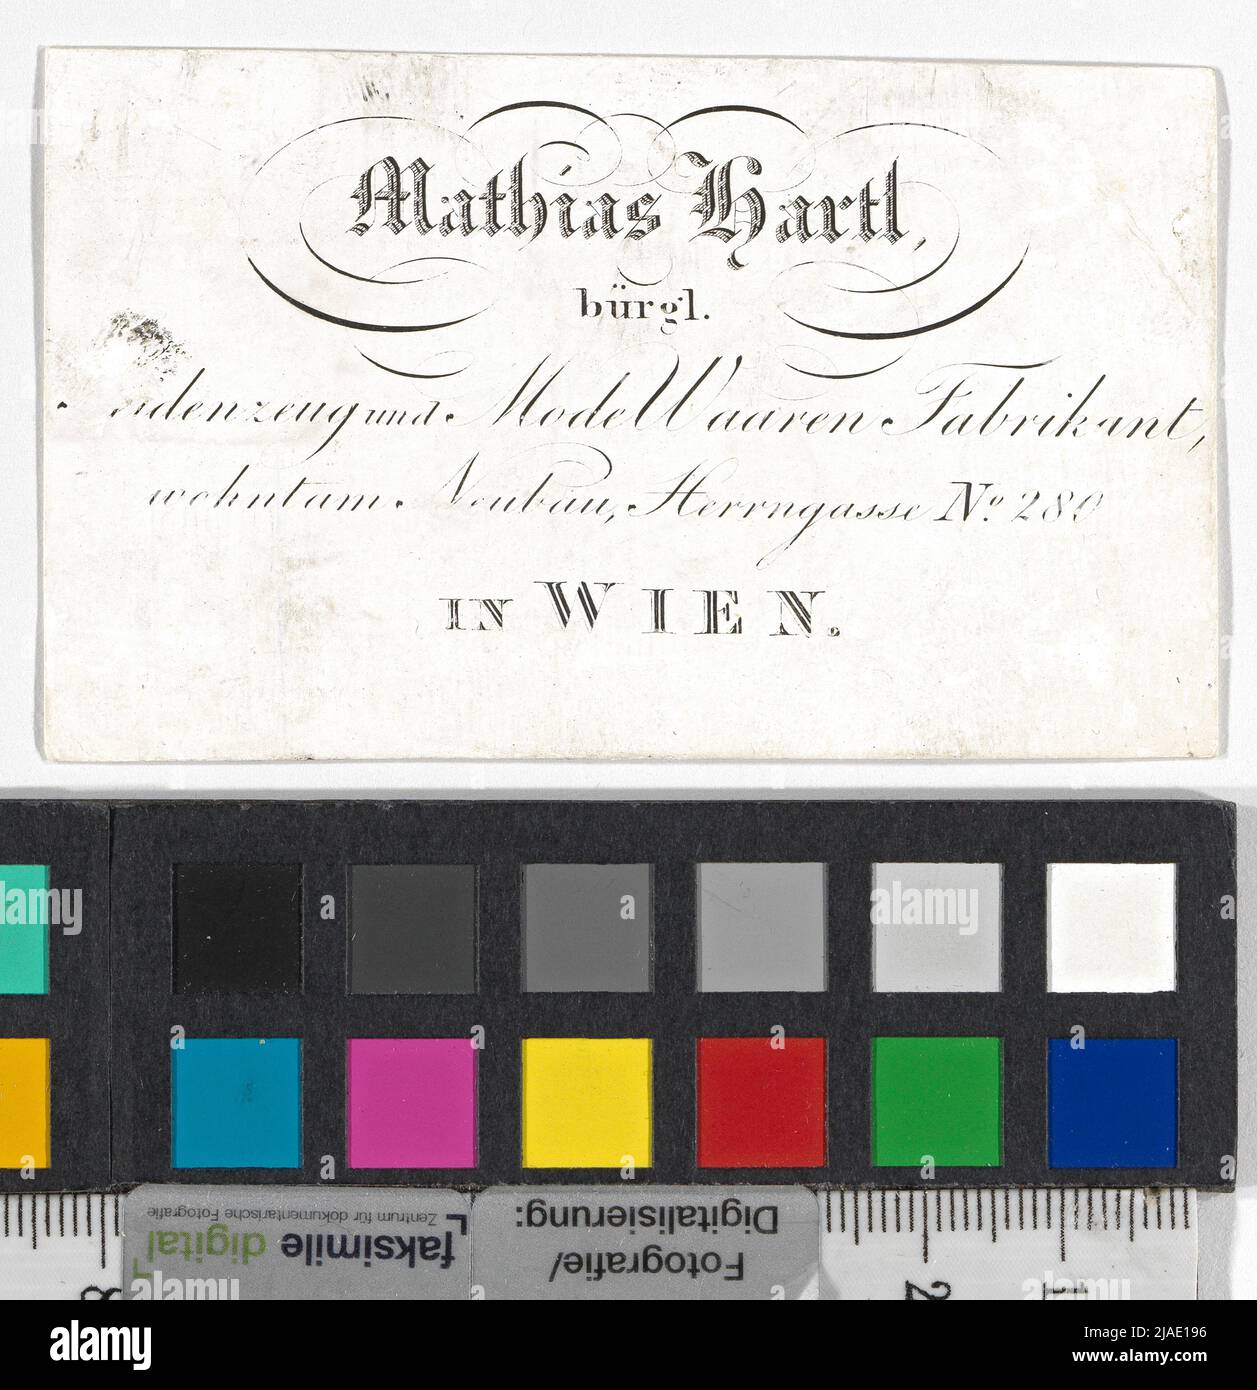 Mathias Hartl,
bürgl.
eidenzeug und Mode Waaren Fabrikant,
wohnt am Neubau, Herrngasse No. 280
IN WIEN.
faksimile digital
Zentrum für dokumentarische Fotografie
Fotografie/
Digitalisierung:
8 2 1
alamy
Image ID: 2JAE196
www.alamy.com